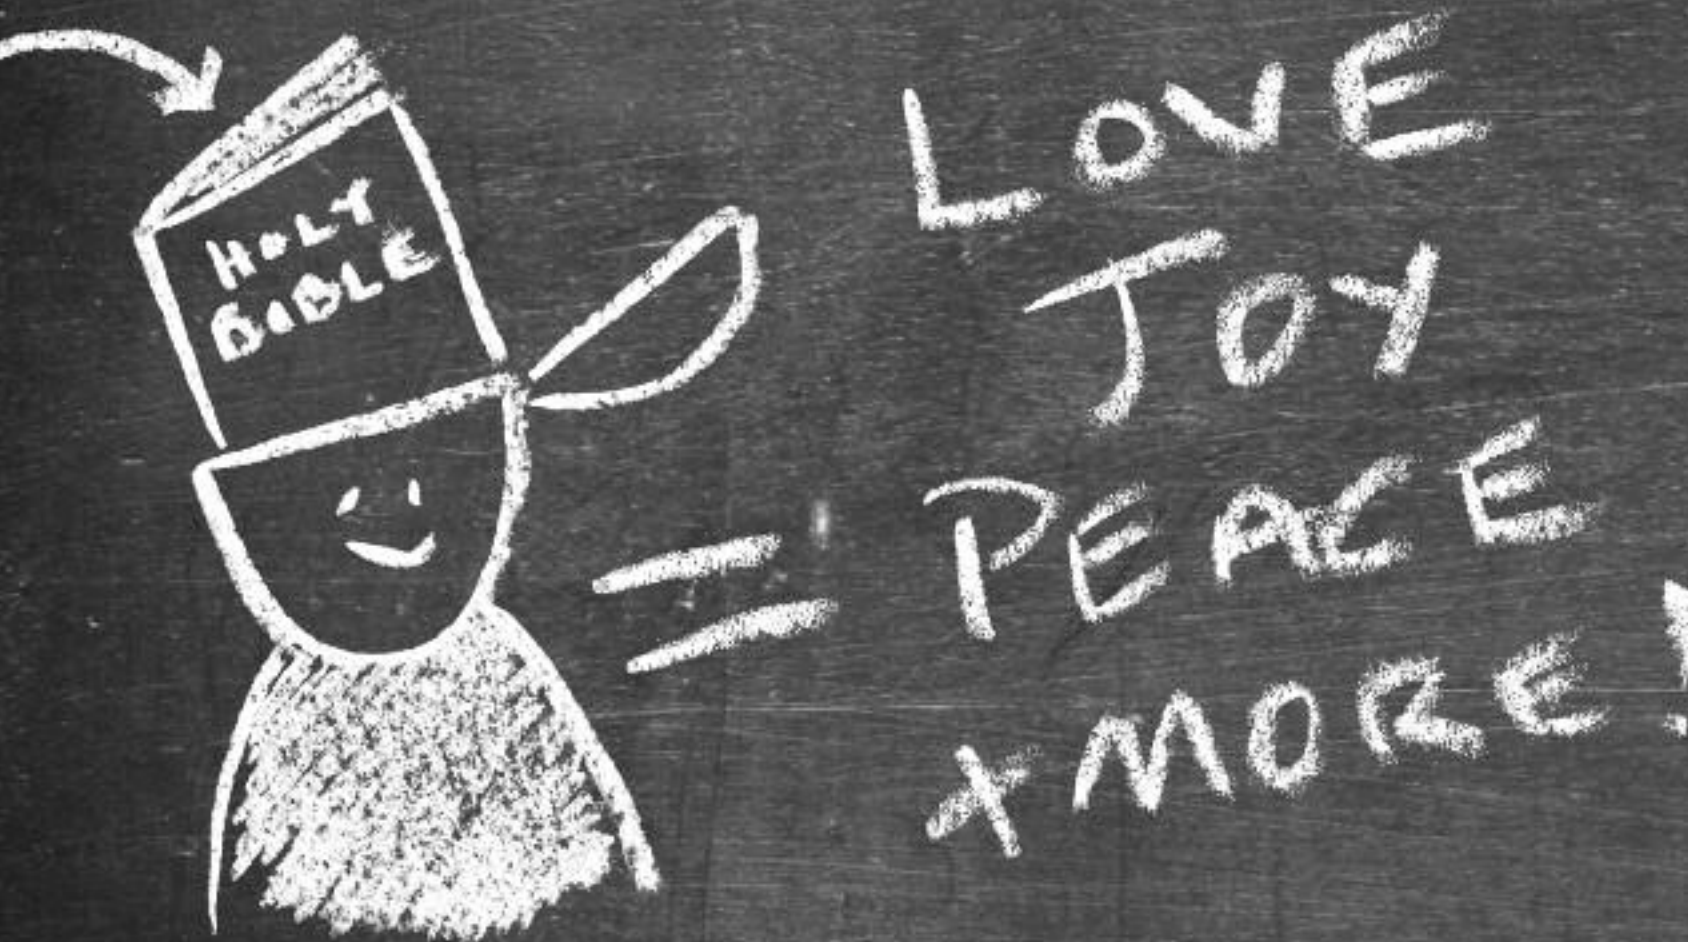 HOLY
BIBLE
=
LOVE
JOY
PEACE
+MORE!